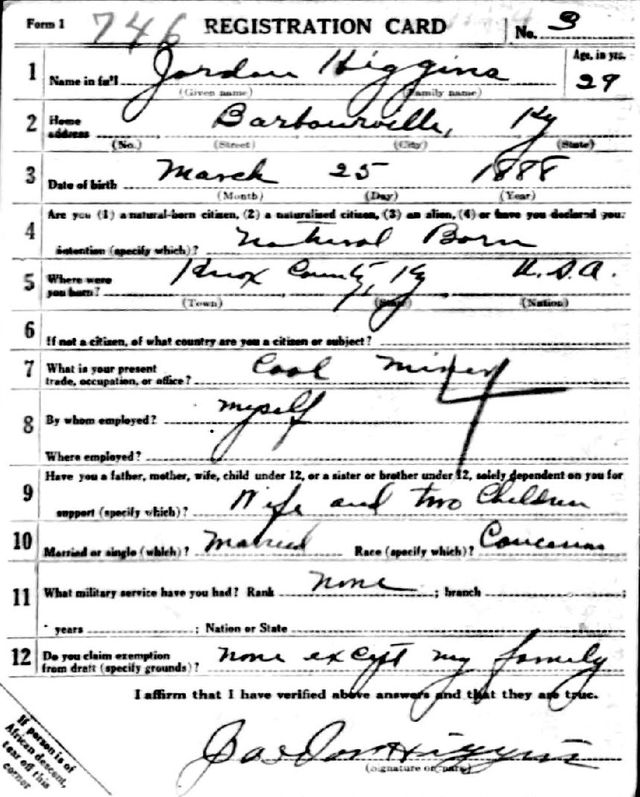 Form 1 746 REGISTRATION CARD No. 3
1 Name in full Jordan Higgins Age, in yrs. 29
(Given name) (Family name)
2 Home address Barbourville, Ky
(No.) (Street) (City) (State)
3 Date of birth March 25 1888
(Month) (Day) (Year)
4 Are you (1) a natural-born citizen, (2) a naturalized citizen, (3) an alien, (4) or have you declared your
intention (specify which)? Natural Born
5 Where were you born? Knox County, Ky U.S.A.
(Town) (State) (Nation)
6 If not a citizen, of what country are you a citizen or subject?
7 What is your present
trade, occupation, or office? Coal Miner
8 By whom employed? myself
Where employed?
9 Have you a father, mother, wife, child under 12, or a sister or brother under 12, solely dependent on you for
support (specify which)? Wife and two Children
10 Married or single (which)? Married Race (specify which)? Caucasian
11 What military service have you had? Rank None ; branch ;
years ; Nation or State
12 Do you claim exemption
from draft (specify grounds)? none except my family
I affirm that I have verified above answers and that they are true.
Higgins
(Signature or mark)
If person is of
African descent,
tear off this
corner